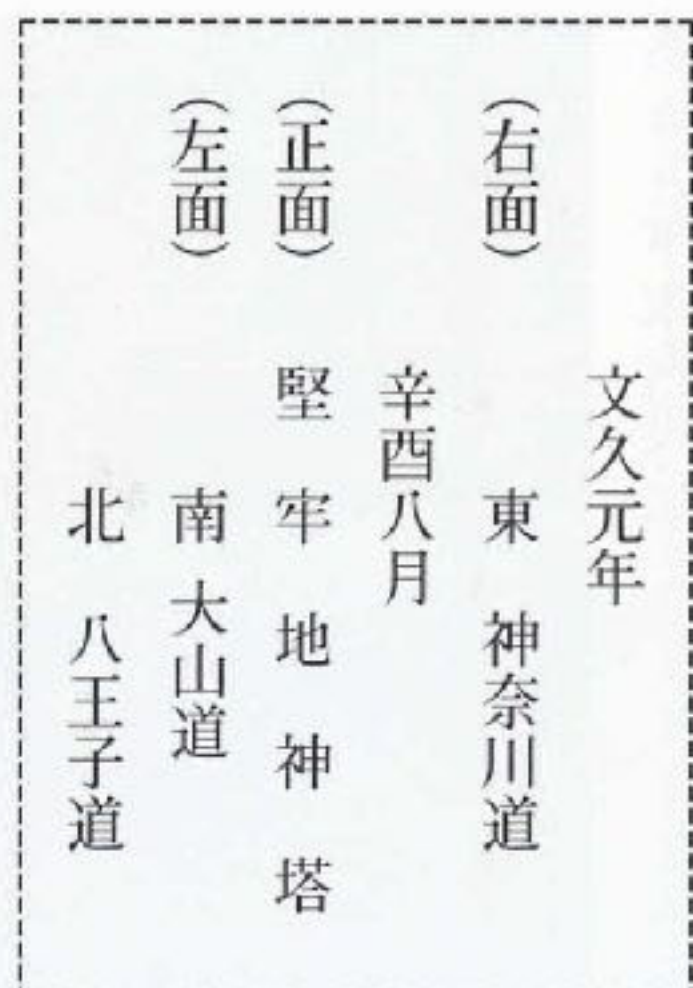 文久元年
(右面) 東 神奈川道
辛酉八月
(正面) 堅牢地神塔
(左面) 南 大山道
北 八王子道